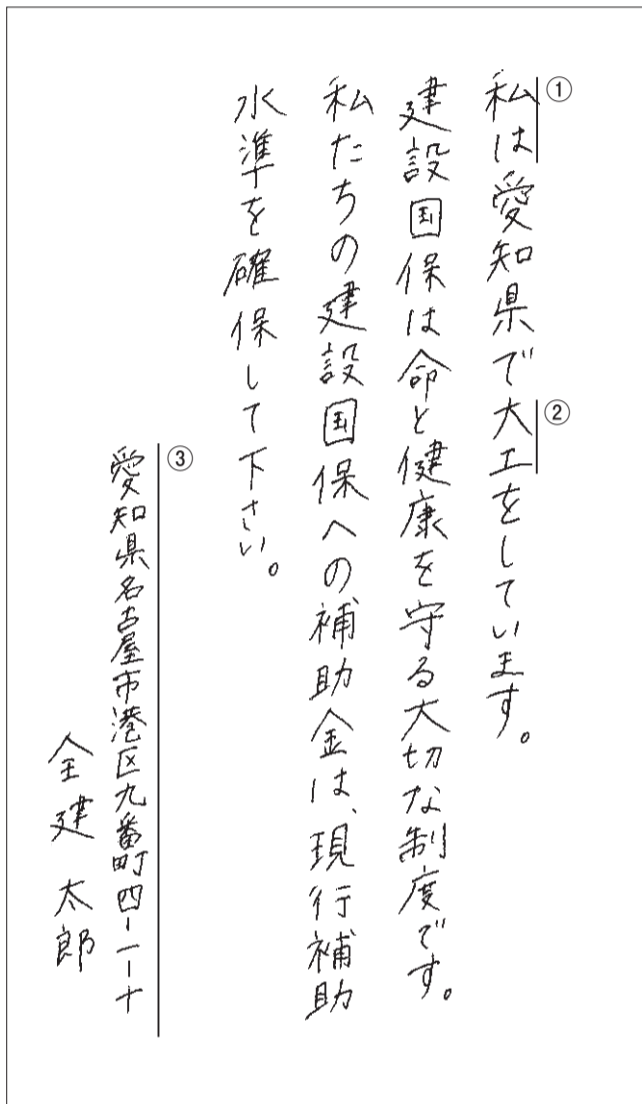 ①
私は愛知県で大工をしています。
②
建設国保は命と健康を守る大切な制度です。
私たちの建設国保への補助金は、現行補助
水準を確保して下さい。
③
愛知県名古屋市港区九番町四-一-十
全建太郎